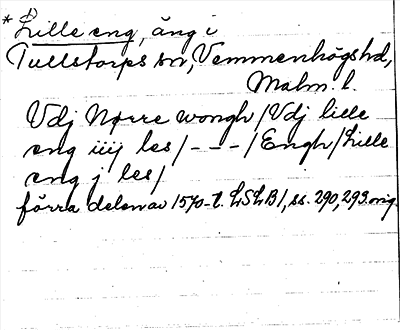 * Lille eng, äng i
Tullstorps sn, Vemmenhögs hd,
Malm. l.
Vdj Nørre wongh / Vdj lille
eng iiij les / - - - / Engh / Lille
eng j les /
förra delen av 1570-t. LSLB 1, ss. 290, 293. orig.